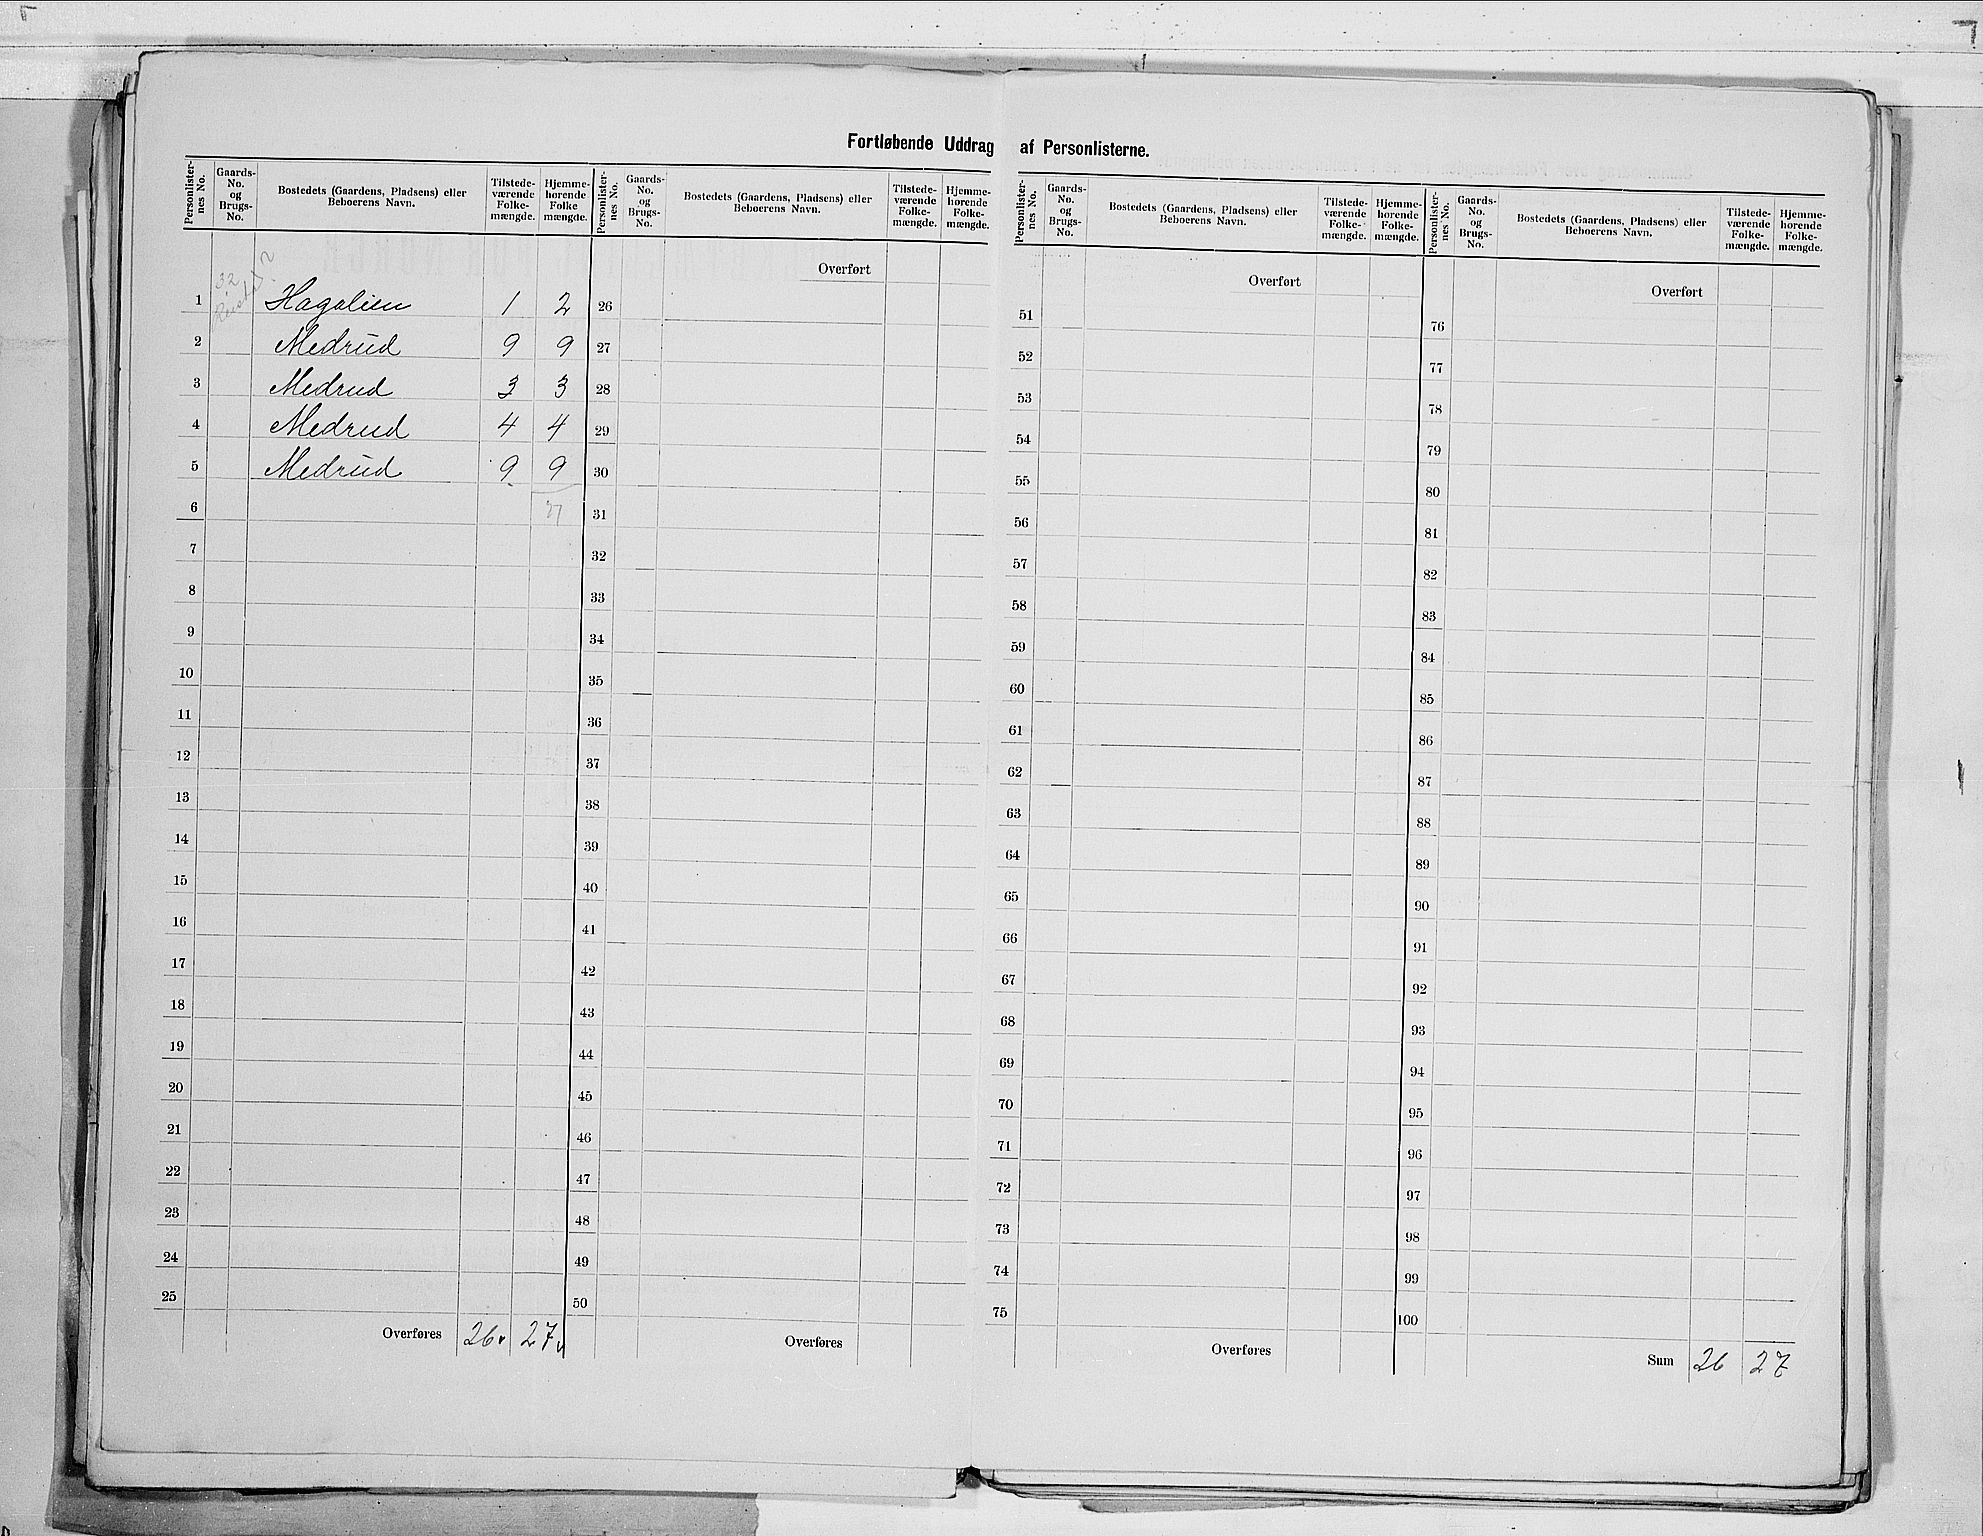 Fortløbende Uddrag af Personlisterne.
Personlister-nes No. | Gaards-No. og Brugs-No. | Bostedets (Gaardens, Pladsens) eller Beboerens Navn. | Tilstede-værende Folke-mængde. | Hjemme-hørende Folke mængde. | Personlister-nes No. | Gaards-No. og Brugs-No. | Bostedets (Gaardens, Pladsens) eller Beboerens Navn. | Tilstede-værende Folke-mængde. | Hjemme-hørende Folke-mængde. | Personlister-nes No. | Gaards-No. og Brugs-No. | Bostedets (Gaardens, Pladsens) eller Beboerens Navn. | Tilstede-værende Folke-mængde. | Hjemme-hørende Folke-mængde. | Personlister-nes No. | Gaards-No. og Brugs-No. | Bostedets (Gaardens, Pladsens) eller Beboerens Navn. | Tilstede-værende Folke-mængde. | Hjemme-hørende Folke-mængde.
32
1 Hagalien 1 2
2 Medrud 9 9
3 Medrud 3 3
4 Medrud 4 4
5 Medrud 9 9
6 27
7
8
9
10
11
12
13
14
15
16
17
18
19
20
21
22
23
24
25
Overføres 26 27
Overført
26
27
28
29
30
31
32
33
34
35
36
37
38
39
40
41
42
43
44
45
46
47
48
49
50
Overføres
Overført
51
52
53
54
55
56
57
58
59
60
61
62
63
64
65
66
67
68
69
70
71
72
73
74
75
Overføres
Overført
76
77
78
79
80
81
82
83
84
85
86
87
88
89
90
91
92
93
94
95
96
97
98
99
100
Sum 26 27